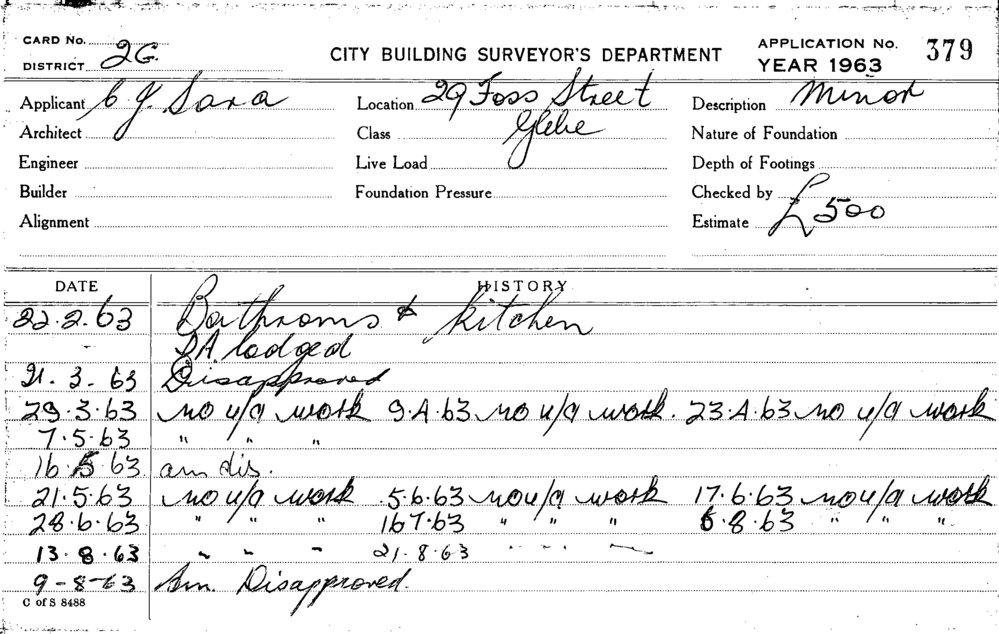 CARD No.
DISTRICT 2G.
CITY BUILDING SURVEYOR'S DEPARTMENT
APPLICATION No. 379
YEAR 1963
Applicant C J. Sara
Location 29 Foss Street
Glebe
Description Minor
Architect
Class
Nature of Foundation
Engineer
Live Load
Depth of Footings
Builder
Foundation Pressure
Checked by
Alignment
Estimate £500
DATE HISTORY
22.2.63 Bathrooms & Kitchen
D.A. lodged
21.3.63 Disapproved
29.3.63 no u/a work 9.4.63 no u/a work. 23.4.63 no u/a work
7.5.63 " " "
16.5.63 am dis.
21.5.63 no u/a work 5.6.63 no u/a work 17.6.63 no u/a work
28.6.63 " " " 16.7.63 " " " 6.8.63 " " "
13.8.63 " " " 21.8.63 " " "
9-8-63 Am. Disapproved.
C of S 8488